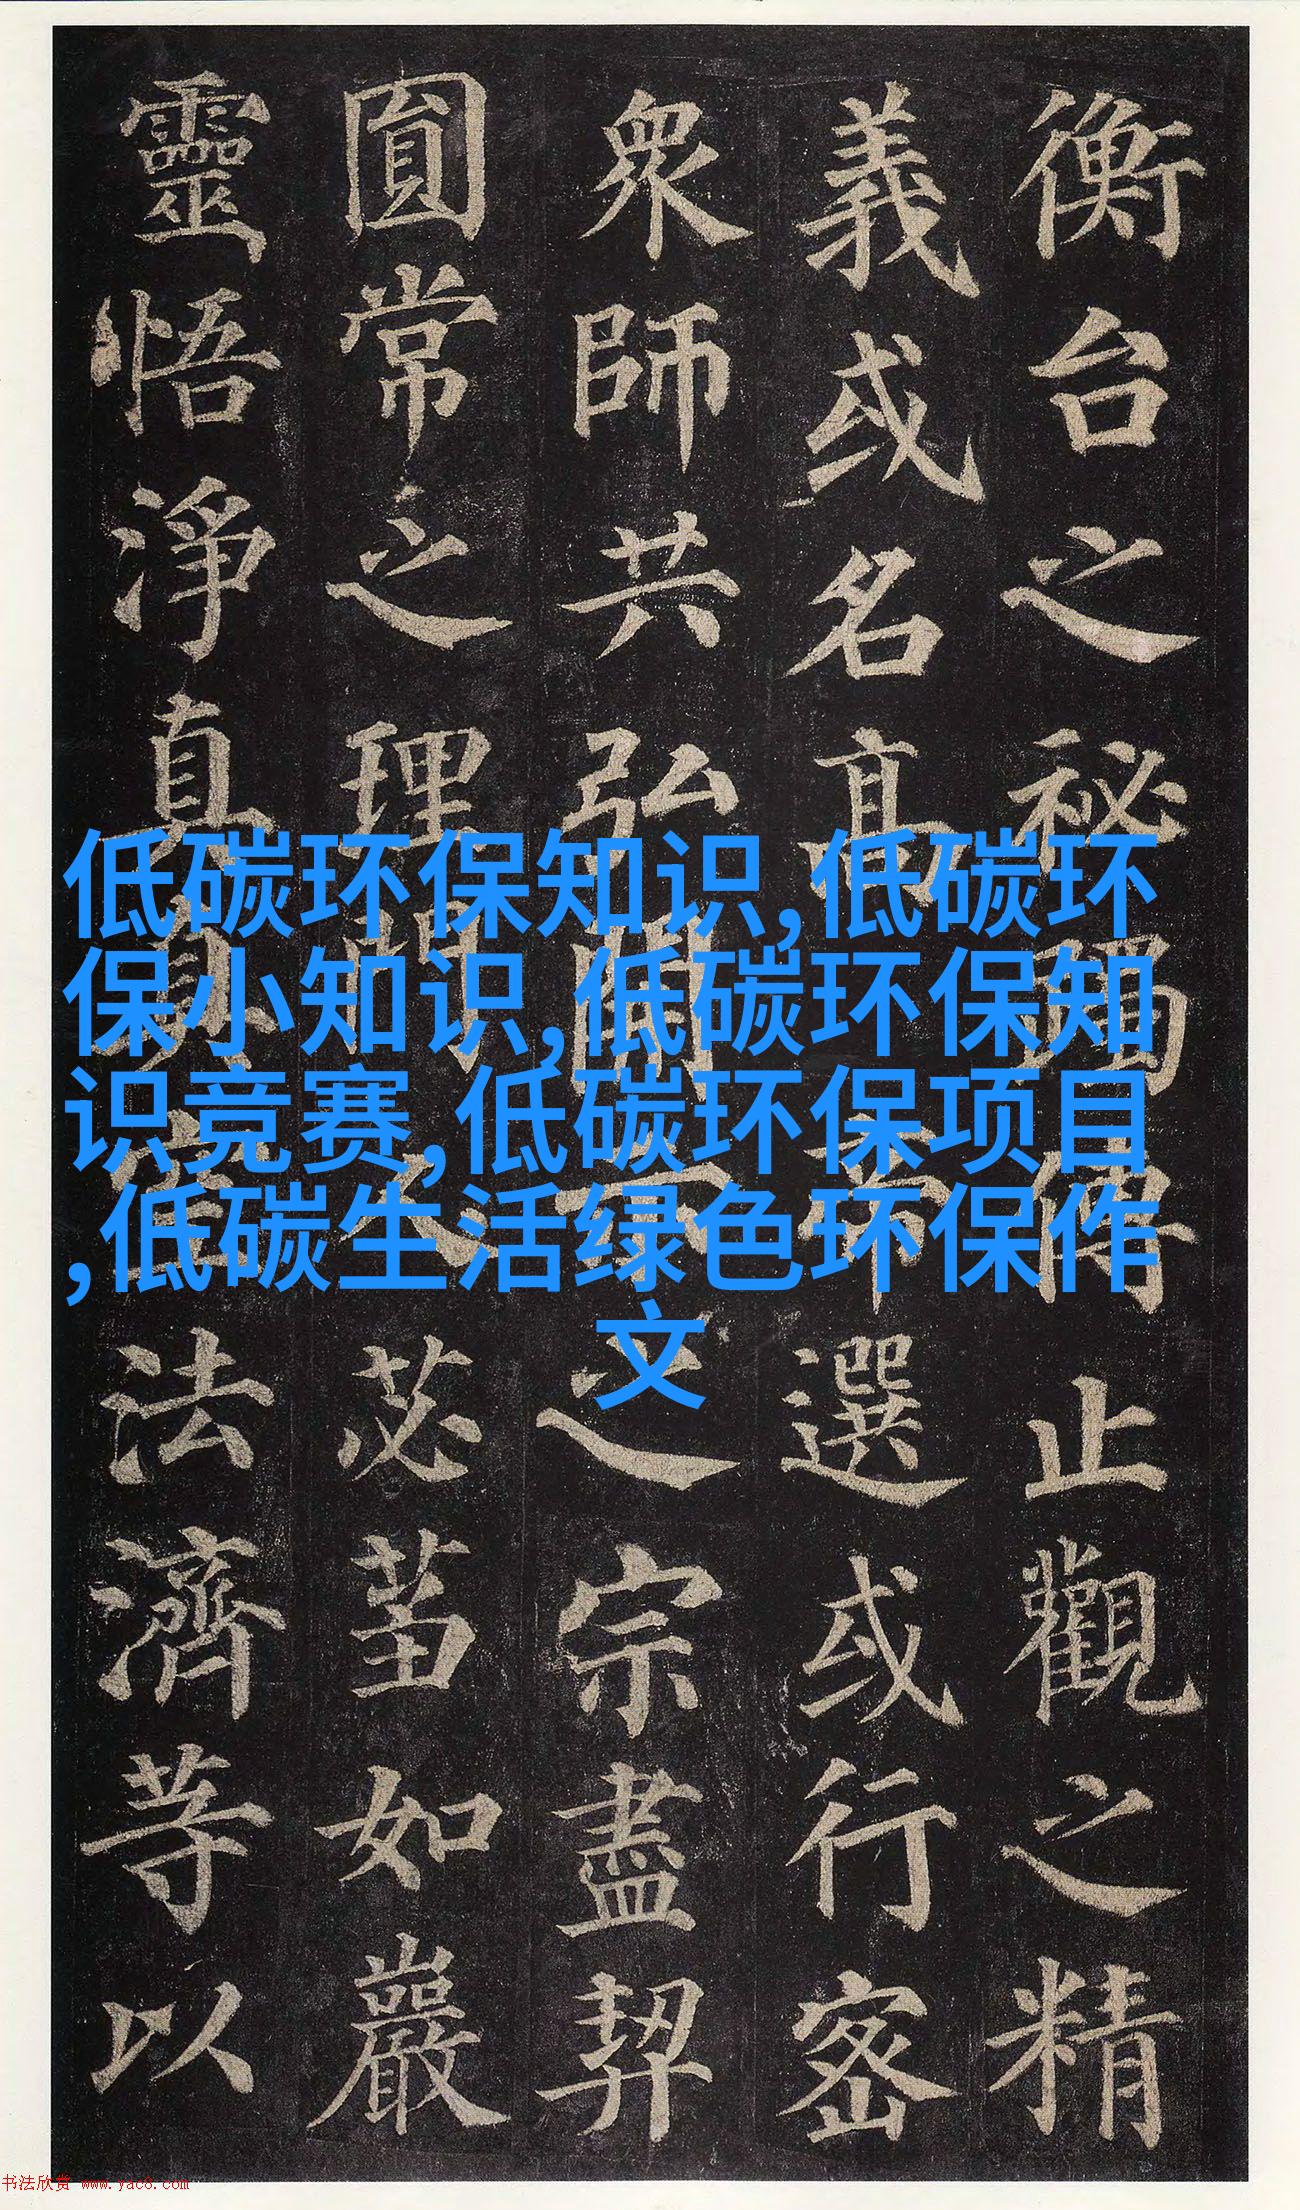 衡台之秘躅傳止觀之精
義或名高帝選或行密
衆師共弘開示之宗盡契
圓常之理門人苾蒭如巖
靈悟淨真真空法濟等以
低碳环保知识,低碳环
保小知识,低碳环保知
识竞赛,低碳环保项目
,低碳生活绿色环保作
文
书法欣赏 www.yac8.com